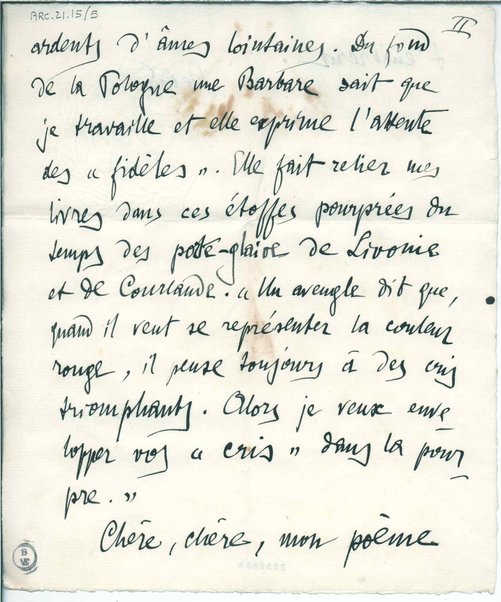 ARC.21.15/5
II
ardents d'âmes lointaines. Du fond
de la Pologne une Barbare sait que
je travaille et elle exprime l'attente
des « fidèles ». Elle fait relier mes
livres dans ces étoffes pourprées du
temps des porte-glaive de Livonie
et de Courlande. « Un aveugle dit que,
quand il veut se représenter la couleur
rouge, il pense toujours à des cris
triomphants. Alors je veux enve
lopper vos « cris » dans la pour
pre. »
Chère, chère, mon poème